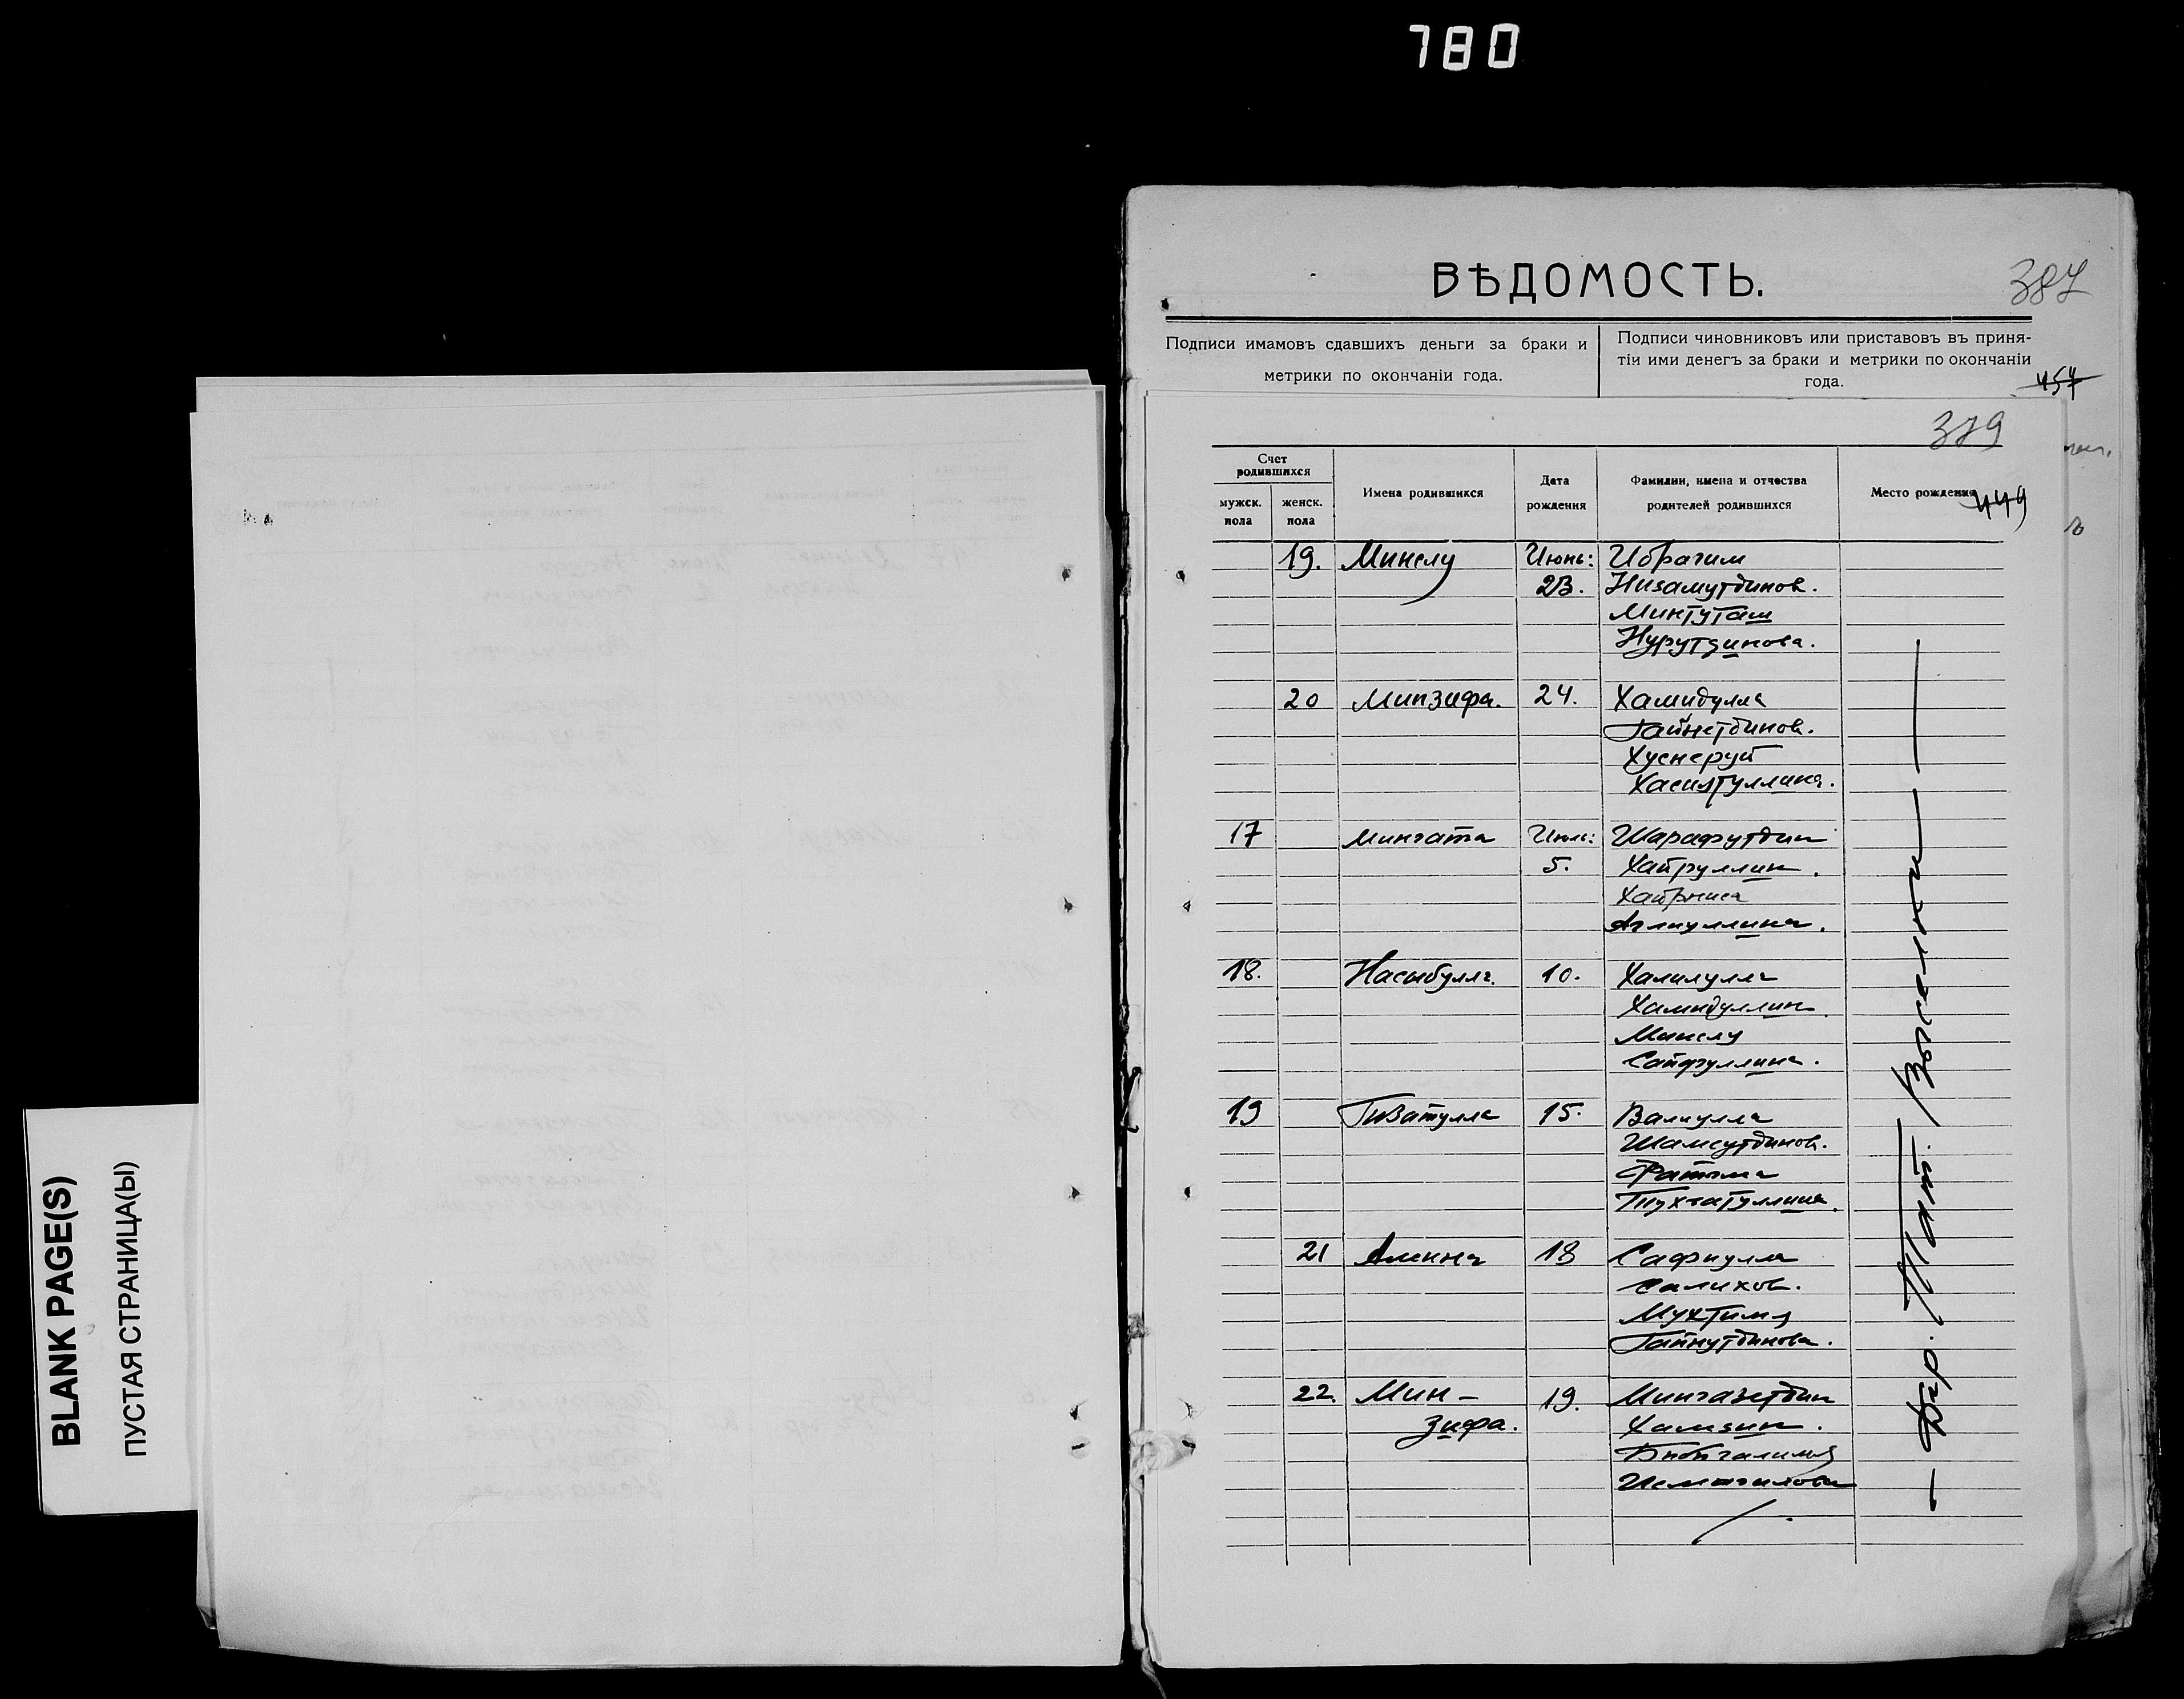 780
BLANK PAGE(S)
ПУСТАЯ СТРАНИЦА(Ы)
ВѢДОМОСТЬ.
387
Подписи имамовъ сдавшихъ деньги за браки и
метрики по окончаніи года.
Подписи чиновниковъ или приставовъ въ приня-
тіи ими денегъ за браки и метрики по окончаніи
года.
457
379
Счет
родившихся
мужск.
пола
женск.
пола
Имена родившихся
Дата
рождения
Фамилии, имена и отчества
родителей родившихся
Место рождения
449
19. Минслу Июнь: Ибрагим
23. Низамутдинов.
Минтуташ
Нурутдинова.
20 Минзифа. 24. Хамидулла
Гайнетдинов.
Хуснеруй
Хасиятуллина.
17 Мингата Июль: Шарафутдин
5. Хайруллин.
Хайрниса
Аглиуллина.
18. Насыбулла. 10. Халилулла
Хамидуллин.
Минслу
Сайфуллина.
19 Гизатулла 15. Валиулла
Шамсутдинов.
Фатыма
Тухватуллина.
21 Амина 18 Сафиулла
Салихов.
Мухтима
Гайнутдинова.
22. Мин- 19. Мингазетдин
зифа. Хамзин.
Бибигалима
Исмагилова
— Дер. Тат. Выселки —